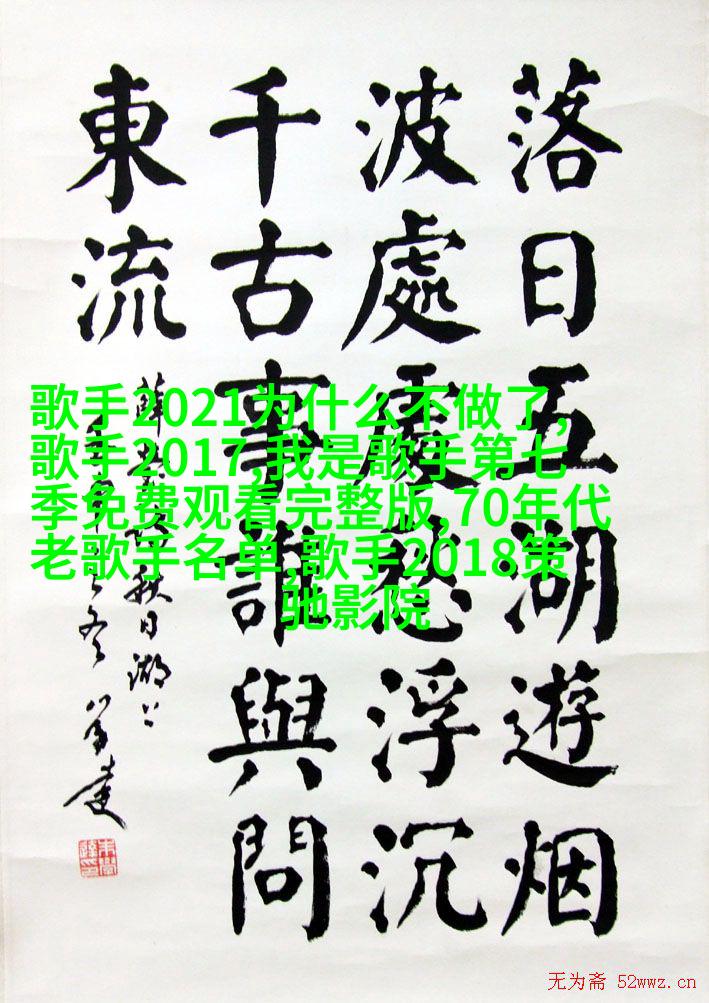 落日五湖遊烟
波處處愁浮沉
千古事誰與問
東流
薛秋日湖上
歌手2021为什么不做了,
歌手2017,我是歌手第七
季免费观看完整版,70年代
老歌手名单,歌手2018策
驰影院
无为斋 52wwz.cn